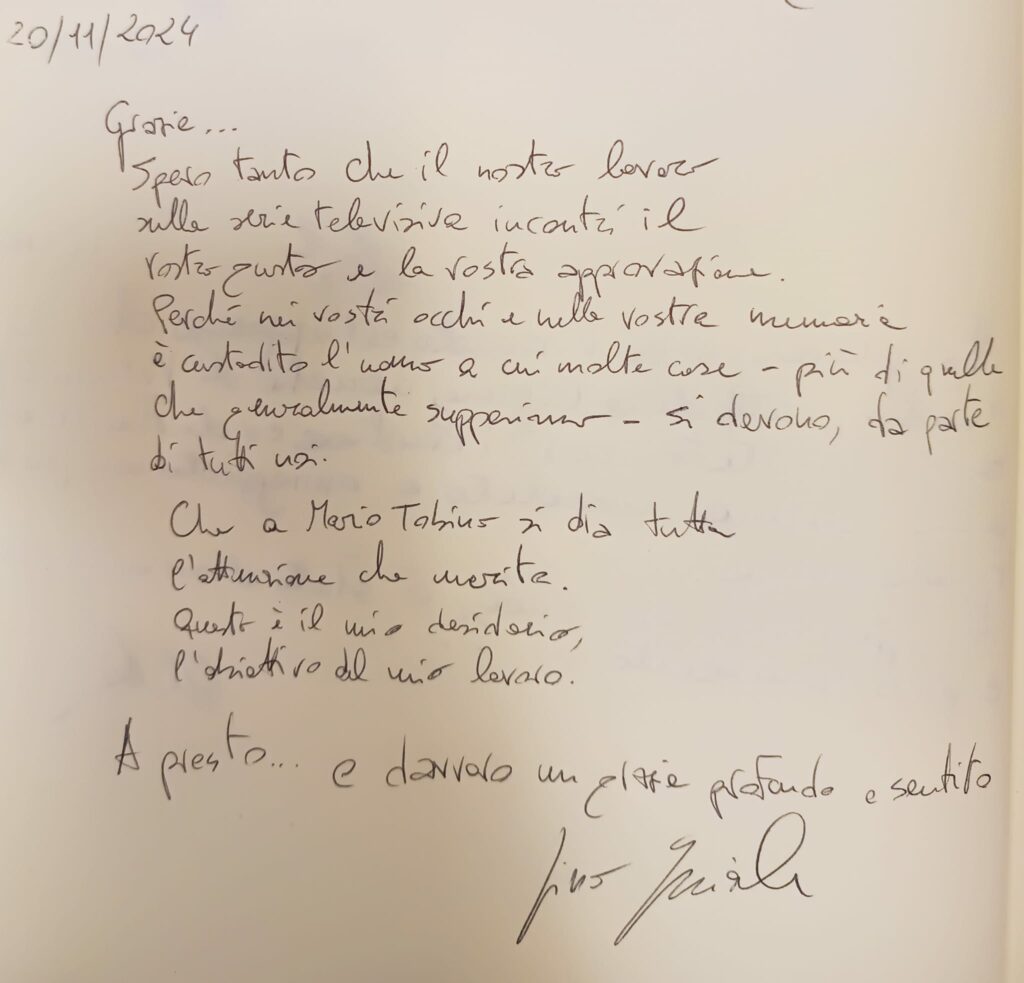 20/11/2024
Grazie...
Spero tanto che il nostro lavoro
sulla serie televisiva incontri il
vostro gusto e la vostra approvazione.
Perché nei vostri occhi e nella vostra memoria
è custodito l'uomo a cui molte cose – più di quelle
che generalmente supponiamo – si devono, da parte
di tutti noi.
Che a Mario Tobino si dia tutta
l'attenzione che merita.
Questo è il mio desiderio,
l'obiettivo del mio lavoro.
A presto... e davvero un grazie profondo e sentito